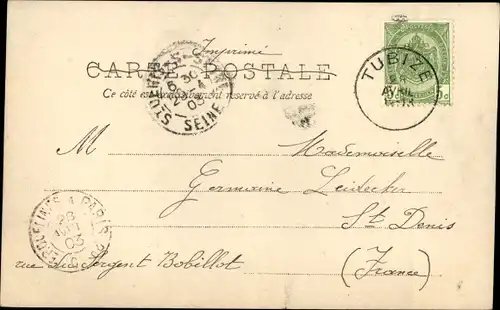 Imprimé
CARTE POSTALE
Ce côté est exclusivement réservé à l'adresse
TUBIZE
AVRIL
5c
SEINE
03
M Mademoiselle
Germaine Leidecker
St Denis
rue du Sergent Bobillot (France)
ERQUELINES A PARIS
03